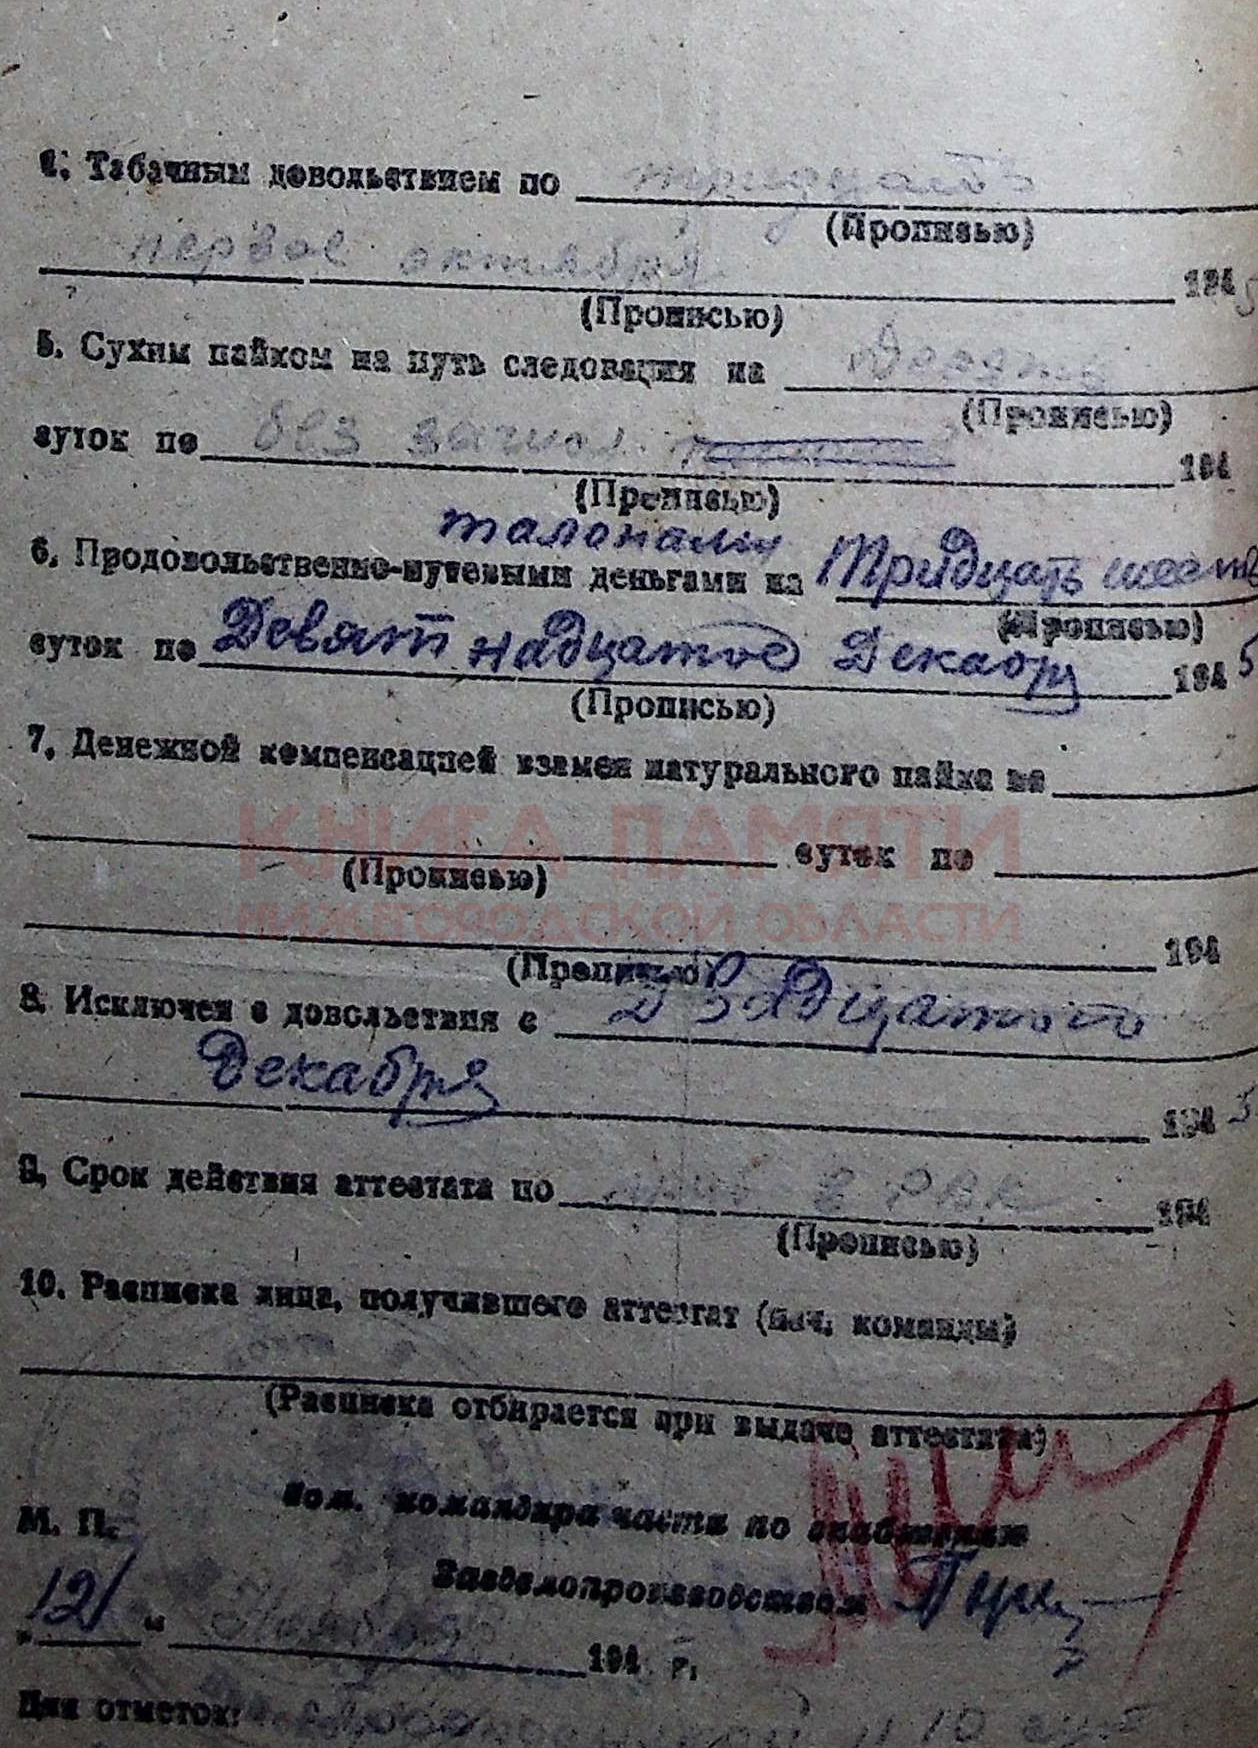 4. Табачным довольствием по тридцать
(Прописью)
первое октября 1945
(Прописью)
5. Сухим пайком на путь следования на десять
(Прописью)
суток по без 194
(Прописью)
талонами
6. Продовольственно-путевыми деньгами на Тридцать шесть
(Прописью)
суток по Девятнадцатое Декабря 1945
(Прописью)
7. Денежной компенсацией взамен натурального пайка на
суток по
(Прописью)
КНИГА ПАМЯТИ
НИЖЕГОРОДСКОЙ ОБЛАСТИ
194
(Прописью)
8. Исключен с довольствия с Двадцатого
Декабря 1945
9. Срок действия аттестата по приб в РВК 194
(Прописью)
10. Расписка лица, получившего аттестат (нач. команды)
(Расписка отбирается при выдаче аттестата)
Пом. командира части по снабжению
М. П.
Завделопроизводством
„12“ Ноября 194 г.
Для отметок: и 10 сут